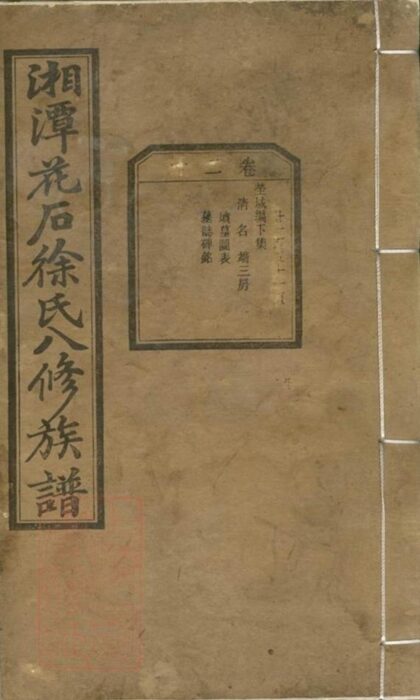 湘潭花石徐氏八修族譜
卷二十
塋域編下集
清名靖三房
墳墓圖表
墓誌碑銘